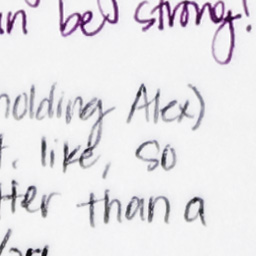 in be strong!
holding Alex)
t. like, so
tter than a